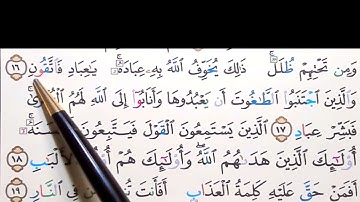 وَمِن تَحْتِهِمْ ظُلَلٌ ذَٰلِكَ يُخَوِّفُ اللَّهُ بِهِ عِبَادَهُ يَاعِبَادِ فَاتَّقُونِ ١٦
وَالَّذِينَ اجْتَنَبُوا الطَّاغُوتَ أَن يَعْبُدُوهَا وَأَنَابُوا إِلَى اللَّهِ لَهُمُ الْبُشْرَىٰ
فَبَشِّرْ عِبَادِ ١٧ الَّذِينَ يَسْتَمِعُونَ الْقَوْلَ فَيَتَّبِعُونَ
أُولَٰئِكَ الَّذِينَ هَدَاهُمُ اللَّهُ وَأُولَٰئِكَ هُمْ أُولُو الْأَلْبَابِ ١٨
أَفَمَنْ حَقَّ عَلَيْهِ كَلِمَةُ الْعَذَابِ أَفَأَنتَ مَن فِي النَّارِ ١٩